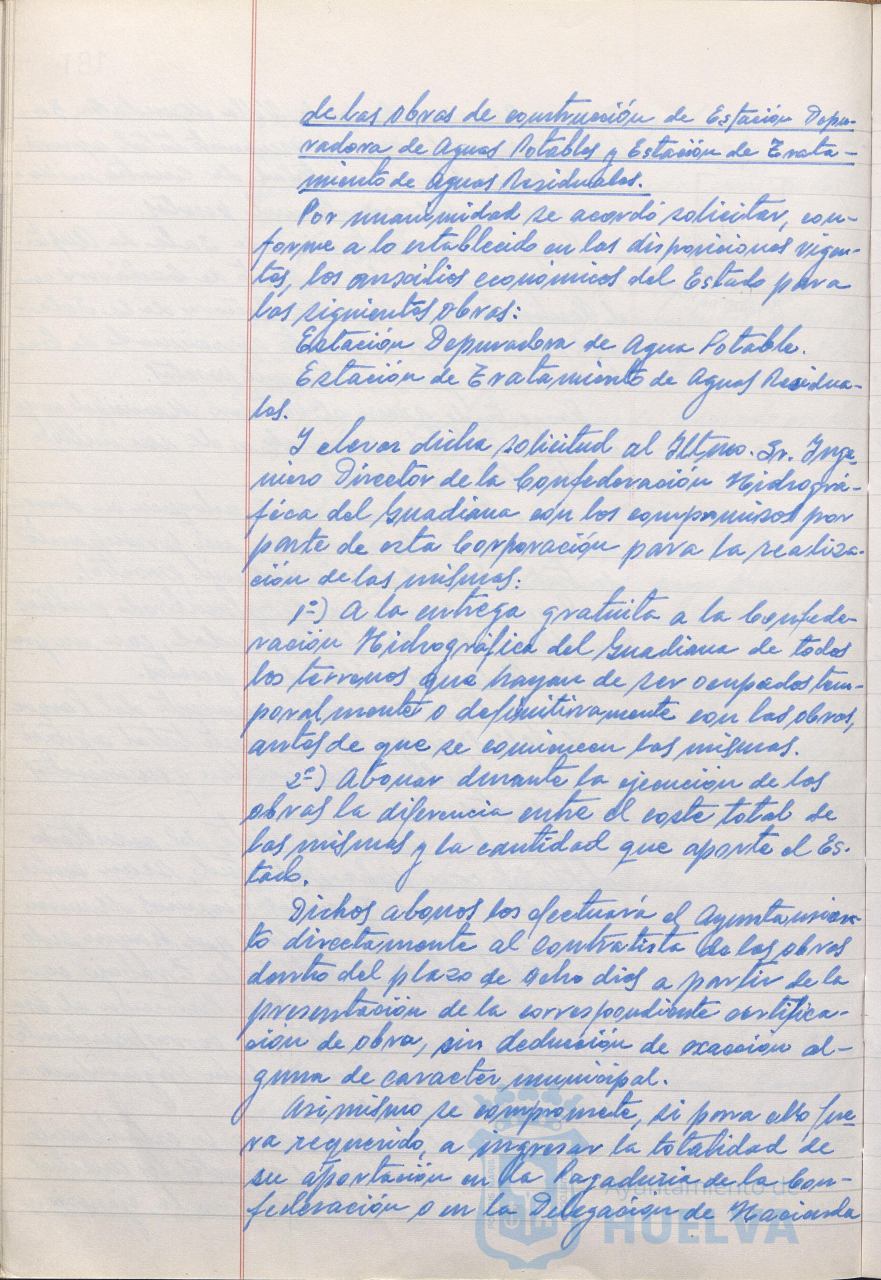 de las obras de construcción de Estación Depu-
radora de Aguas Potables y Estación de Trata-
miento de aguas Residuales.
Por unanimidad se acordó solicitar, con-
forme a lo establecido en las disposiciones vigen-
tes, los auxilios económicos del Estado para
las siguientes obras:
Estación Depuradora de Agua Potable.
Estación de Tratamiento de Aguas Residua-
les.
Y elevar dicha solicitud al Iltmo. Sr. Inge-
niero Director de la Confederación Hidrográ-
fica del Guadiana con los compromisos por
parte de esta Corporación para la realiza-
ción de las mismas:
1º) A la entrega gratuita a la Confede-
ración Hidrográfica del Guadiana de todos
los terrenos que hayan de ser ocupados tem-
poralmente o definitivamente con las obras,
antes de que se comiencen las mismas.
2º) Abonar durante la ejecución de las
obras la diferencia entre el coste total de
las mismas y la cantidad que aporte el Es-
tado.
Dichos abonos los efectuará el Ayuntamien-
to directamente al contratista de las obras
dentro del plazo de ocho dias a partir de la
presentación de la correspondiente certifica-
ción de obra, sin deducción de exacción al-
guna de caracter municipal.
Asimismo se compromete, si para ello fue-
ra requerido, a ingresar la totalidad de
su aportación en la Pagaduria de la Con-
federación o en la Delegación de Hacienda
Ayuntamiento de
HUELVA